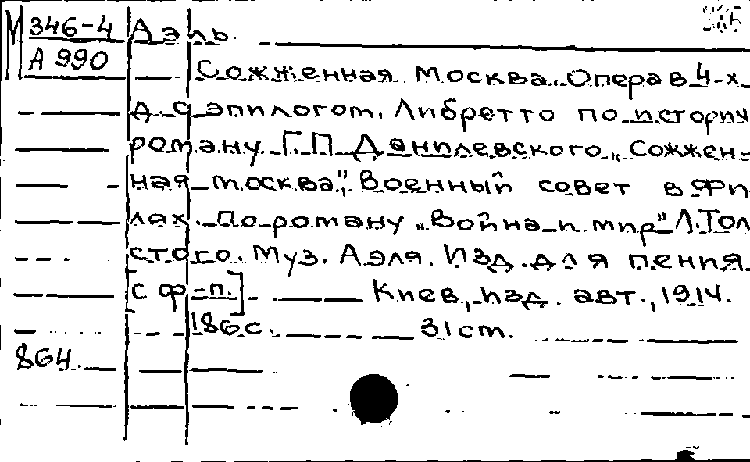 М 346-4
А 990
Аэль.
Сожженная Москва. Опера в 4-х
д. с эпилогом. Либретто по историч
роману Г.П. Данилевского „Сожжен-
ная москва", Военный совет в Фи
лях. По роману „Война и мир" Л. Тол
стого. Муз. Аэля. Изд. для пения
[с ф-п.] Киев, изд. авт., 1914.
186 с. 31 см.
864.